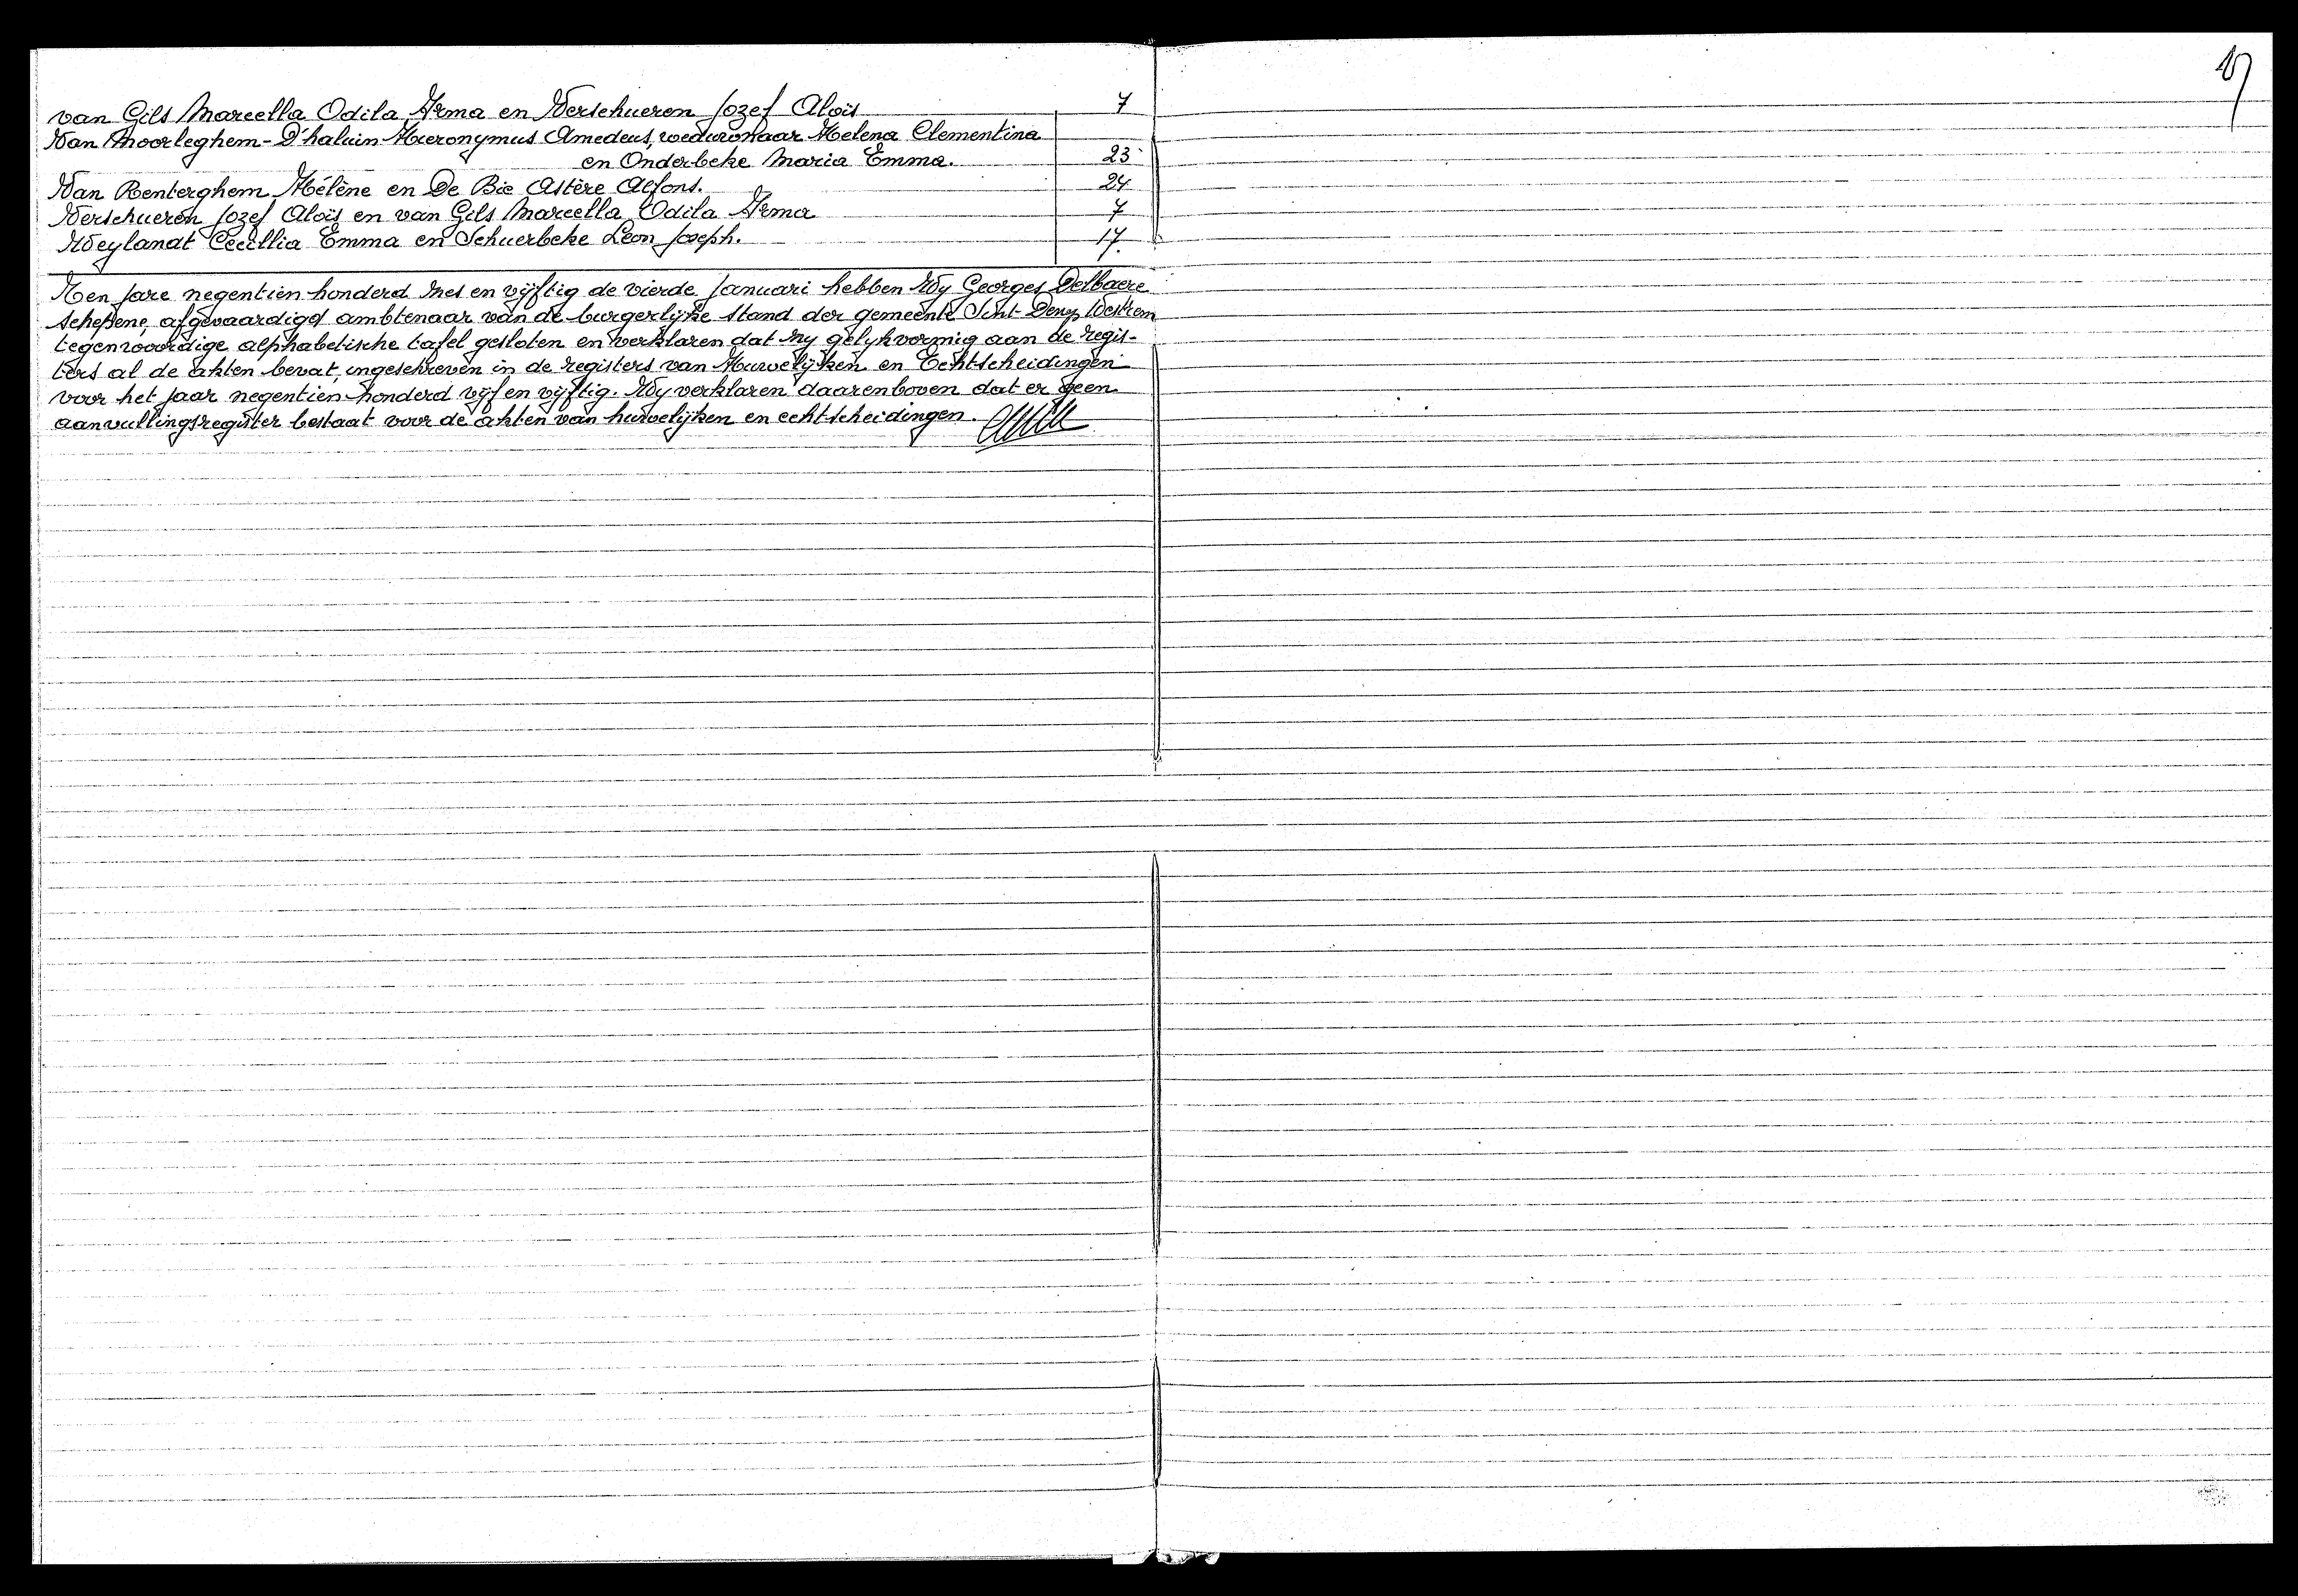 17
van Gils Marcella Odila Irma en Verschueren Jozef Aloïs 7
Van Moorleghem-D'haluin Hieronymus Amedeus, weduwnaar Helena Clementina
en Onderbeke Maria Emma. 23
Van Renterghem Hélène en De Bie Astère Alfons. 24
Verschueren Jozef Aloïs en van Gils Marcella Odila Irma 7
Weylandt Cecillia Emma en Schuerbeke Leon Joseph. 17.
Ten jare negentien honderd zes en vijftig de vierde Januari hebben Wy Georges Delbaere
schepene, afgevaardigd ambtenaar van de burgerlijke stand der gemeente Sint-Denys Westrem
tegenwoordige alphabetische tafel gesloten en verklaren dat zy gelykvormig aan de regis-
ters al de akten bevat, ingeschreven in de registers van Huwelijken en Echtscheidingen
voor het jaar negentien honderd vijf en vijftig. Wy verklaren daarenboven dat er geen
aanvullingsregister bestaat voor de akten van huwelijken en echtscheidingen.